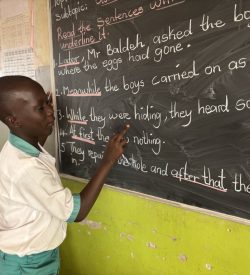 Subtopic:
Read the Sentences
underline it.
Later, Mr Baldeh asked the bo
where the eggs had gone.
1. Meanwhile the boys carried on as
3. While they were hiding, they heard so
4. At first the nothing.
5 They repai hole and after that the